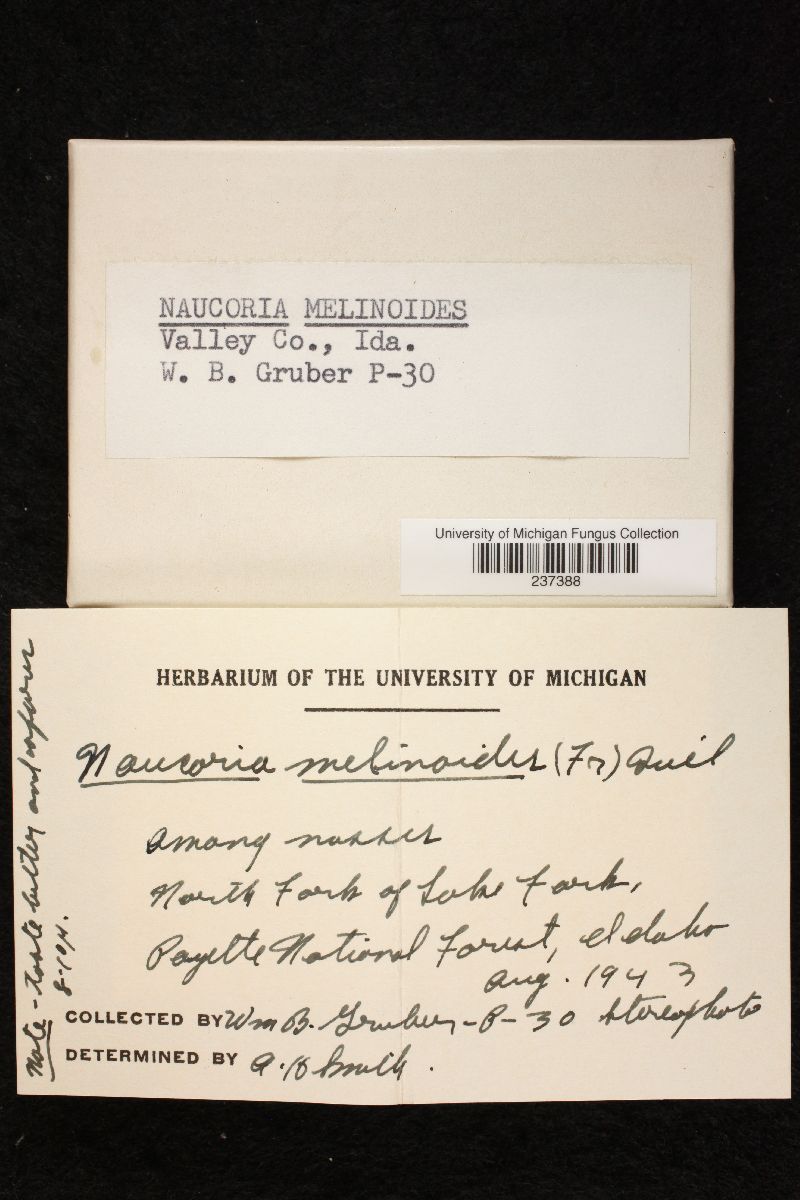 NAUCORIA MELINOIDES
Valley Co., Ida.
W. B. Gruber P-30
University of Michigan Fungus Collection
237388
HERBARIUM OF THE UNIVERSITY OF MICHIGAN
Naucoria melinoides (Fr) Quél
among mosses
North Fork of Lake Fork,
Payette National Forest, Idaho
Aug. 1943
COLLECTED BY Wm B. Gruber - P-30 Stereophoto
DETERMINED BY A. H Smith.
Note - taste bitter and spores
8-10µ.